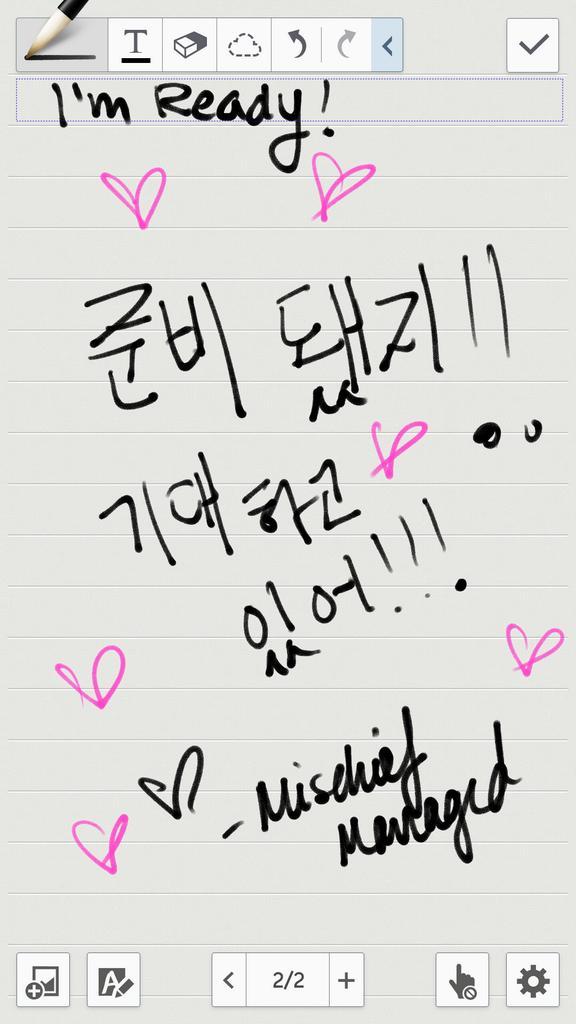 T
I'm Ready!
준비 됐지!!
기대하고
있어!!!
- Mischief
Managed
A
2/2